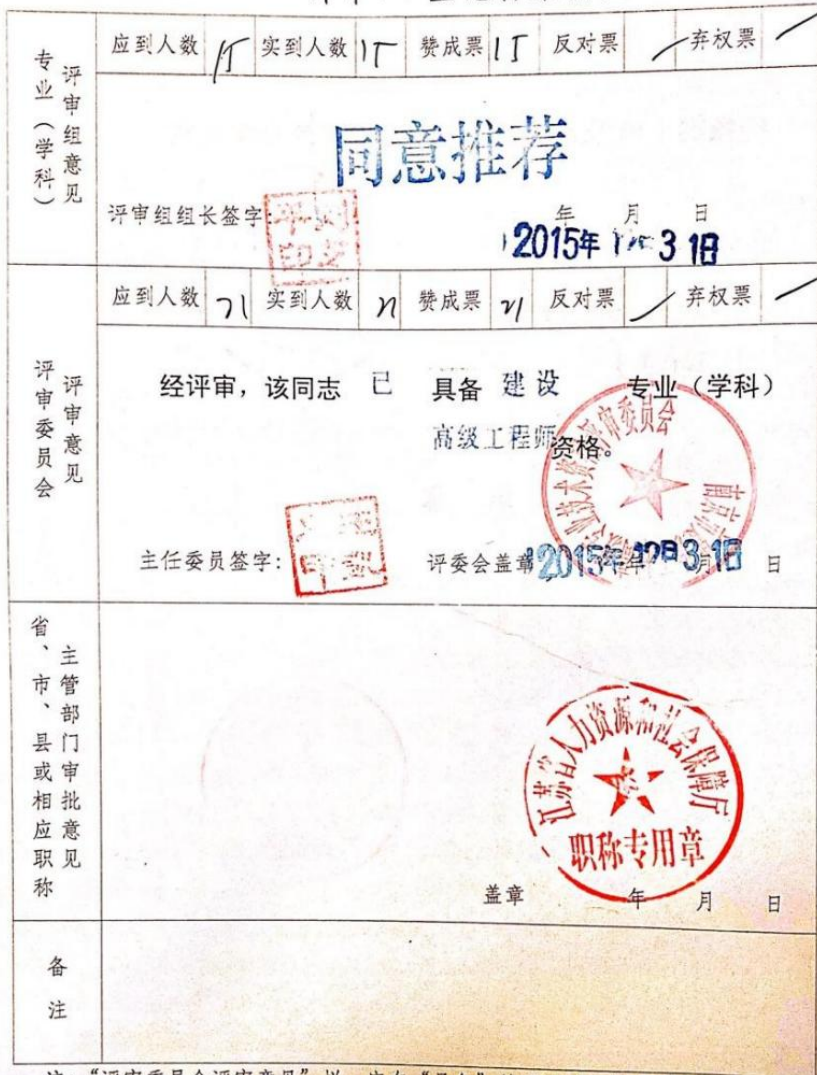 专业（学科）评审组意见
应到人数 15 实到人数 15 赞成票 15 反对票 / 弃权票 /
同意推荐
评审组组长签字:
年 月 日
2015年 3 1日
评审委员会评审意见
应到人数 21 实到人数 21 赞成票 21 反对票 / 弃权票 /
经评审，该同志 已 具备 建设 专业（学科）
高级工程师 资格。
主任委员签字: 评委会盖章 年 月 日
2015年 12月 3 1日
省、市、县或相应职称主管部门审批意见
江苏省人力资源和社会保障厅
职称专用章
盖章 年 月 日
备注